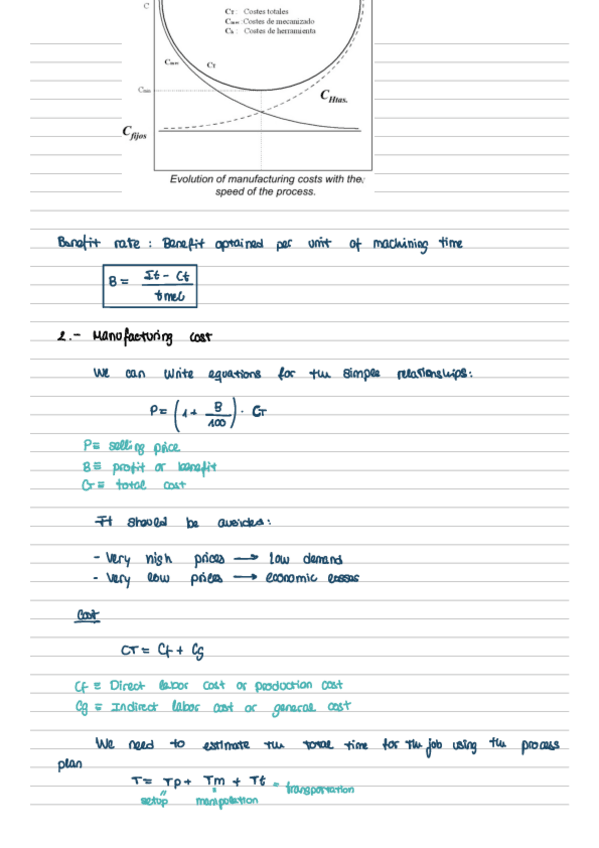 C
CT : Costes totales
Cmec: Costes de mecanizado
Ch : Costes de herramienta
Cmec
CT
Cmin
CHtas.
Cfijos
Evolution of manufacturing costs with the
speed of the process.
Benefit rate : Benefit optained per unit of machining time
B = It - Ct / tmec
2.- Manufacturing cost
We can write equations for the simple relationships:
P = (1 + B/100) · CT
P ≡ selling price
B ≡ profit or benefit
CT ≡ total cost
It should be avoided:
- Very high prices → low demand
- Very low prices → economic losses
Cost
CT = Cf + Cg
Cf ≡ Direct labor cost or production cost
Cg ≡ Indirect labor cost or general cost
We need to estimate the total time for the job using the process
plan
T = Tp + Tm + Tt = transportation
setup manipulation